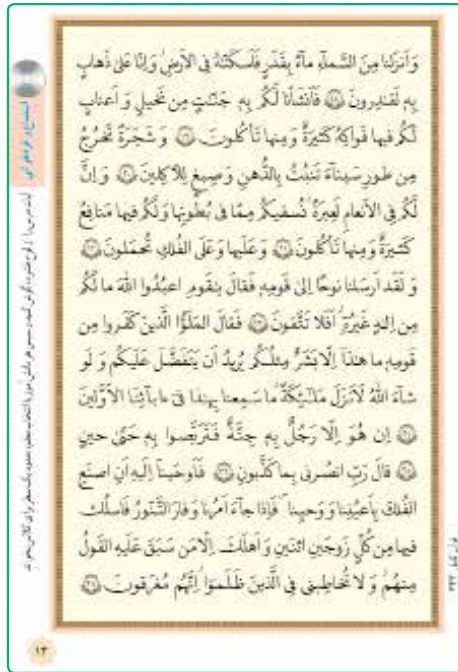 وَ اَنزَلنا مِنَ السَّماءِ ماءً بِقَدَرٍ فَاَسكَنّٰهُ فِی الاَرضِ وَ اِنّا عَلیٰ ذَهابٍ
بِه لَقٰدِرونَ ١٨ فَاَنشَأنا لَكُم بِه جَنّٰتٍ مِن نَخیلٍ وَ اَعنابٍ
لَكُم فیها فَواكِهُ كَثیرَةٌ وَ مِنها تَأكُلونَ ١٩ وَ شَجَرَةً تَخرُجُ
مِن طورِ سَیناءَ تَنبُتُ بِالدُّهنِ وَ صِبغٍ لِلآكِلینَ ٢٠ وَ اِنَّ
لَكُم فِی الاَنعامِ لَعِبرَةً نُسقیكُم مِمّا فی بُطونِها وَ لَكُم فیها مَنافِعُ
كَثیرَةٌ وَ مِنها تَأكُلونَ ٢١ وَ عَلَیها وَ عَلَی الفُلكِ تُحمَلونَ ٢٢
وَ لَقَد اَرسَلنا نوحًا اِلیٰ قَومِه فَقالَ یٰقَومِ اعبُدُوا اللّٰهَ ما لَكُم
مِن اِلٰهٍ غَیرُه اَفَلا تَتَّقونَ ٢٣ فَقالَ المَلَؤُا الَّذینَ كَفَروا مِن
قَومِه ما هٰذا اِلّا بَشَرٌ مِثلُكُم یُریدُ اَن یَتَفَضَّلَ عَلَیكُم وَ لَو
شاءَ اللّٰهُ لَاَنزَلَ مَلٰئِكَةً ما سَمِعنا بِهٰذا فی ءابائِنَا الاَوَّلینَ
٢٤ اِن هُوَ اِلّا رَجُلٌ بِه جِنَّةٌ فَتَرَبَّصوا بِه حَتّیٰ حینٍ
٢٥ قالَ رَبِّ انصُرنی بِما كَذَّبونِ ٢٦ فَاَوحَینا اِلَیهِ اَنِ اصنَعِ
الفُلكَ بِاَعیُنِنا وَ وَحیِنا فَاِذا جاءَ اَمرُنا وَ فارَ التَّنّورُ فَاسلُك
فیها مِن كُلٍّ زَوجَینِ اثنَینِ وَ اَهلَكَ اِلّا مَن سَبَقَ عَلَیهِ القَولُ
مِنهُم وَ لا تُخاطِبنی فِی الَّذینَ ظَلَموا اِنَّهُم مُغرَقونَ ٢٧
۱۳